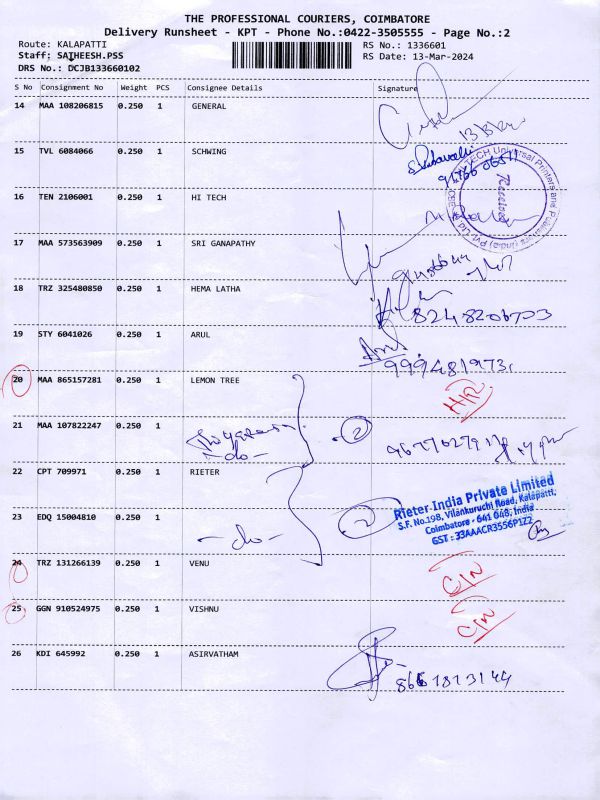 THE PROFESSIONAL COURIERS, COIMBATORE
Delivery Runsheet - KPT - Phone No.:0422-3505555 - Page No.:2
Route: KALAPATTI
RS No.: 1336601
Staff: SATHEESH.PSS
RS Date: 13-Mar-2024
DRS No.: DCJB133660102
S No Consignment No Weight PCS Consignee Details Signature
14 MAA 108206815 0.250 1 GENERAL
15 TVL 6084066 0.250 1 SCHWING
16 TEN 2106001 0.250 1 HI TECH
Received
17 MAA 573563909 0.250 1 SRI GANAPATHY
18 TRZ 325480850 0.250 1 HEMA LATHA
8248206703
19 STY 6041026 0.250 1 ARUL
9994819731
20 MAA 865157281 0.250 1 LEMON TREE
21 MAA 107822247 0.250 1
-do-
2
22 CPT 709971 0.250 1 RIETER
Rieter India Private Limited
S.F. No.198, Vilankuruchi Road, Kalapatti,
Coimbatore - 641 048, India
GST : 33AAACR3556P1Z2
23 EDQ 15004810 0.250 1
-do-
2
24 TRZ 131266139 0.250 1 VENU
CIN
25 GGN 910524975 0.250 1 VISHNU
CIN
26 KDI 645992 0.250 1 ASIRVATHAM